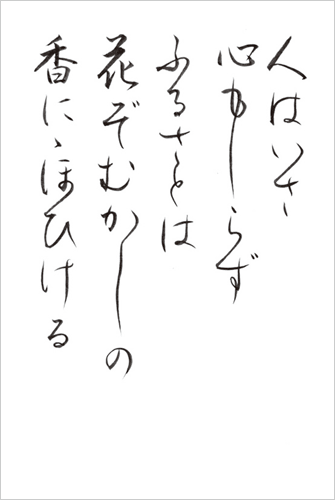 人はいさ
心もしらず
ふるさとは
花ぞむかしの
香にほひける